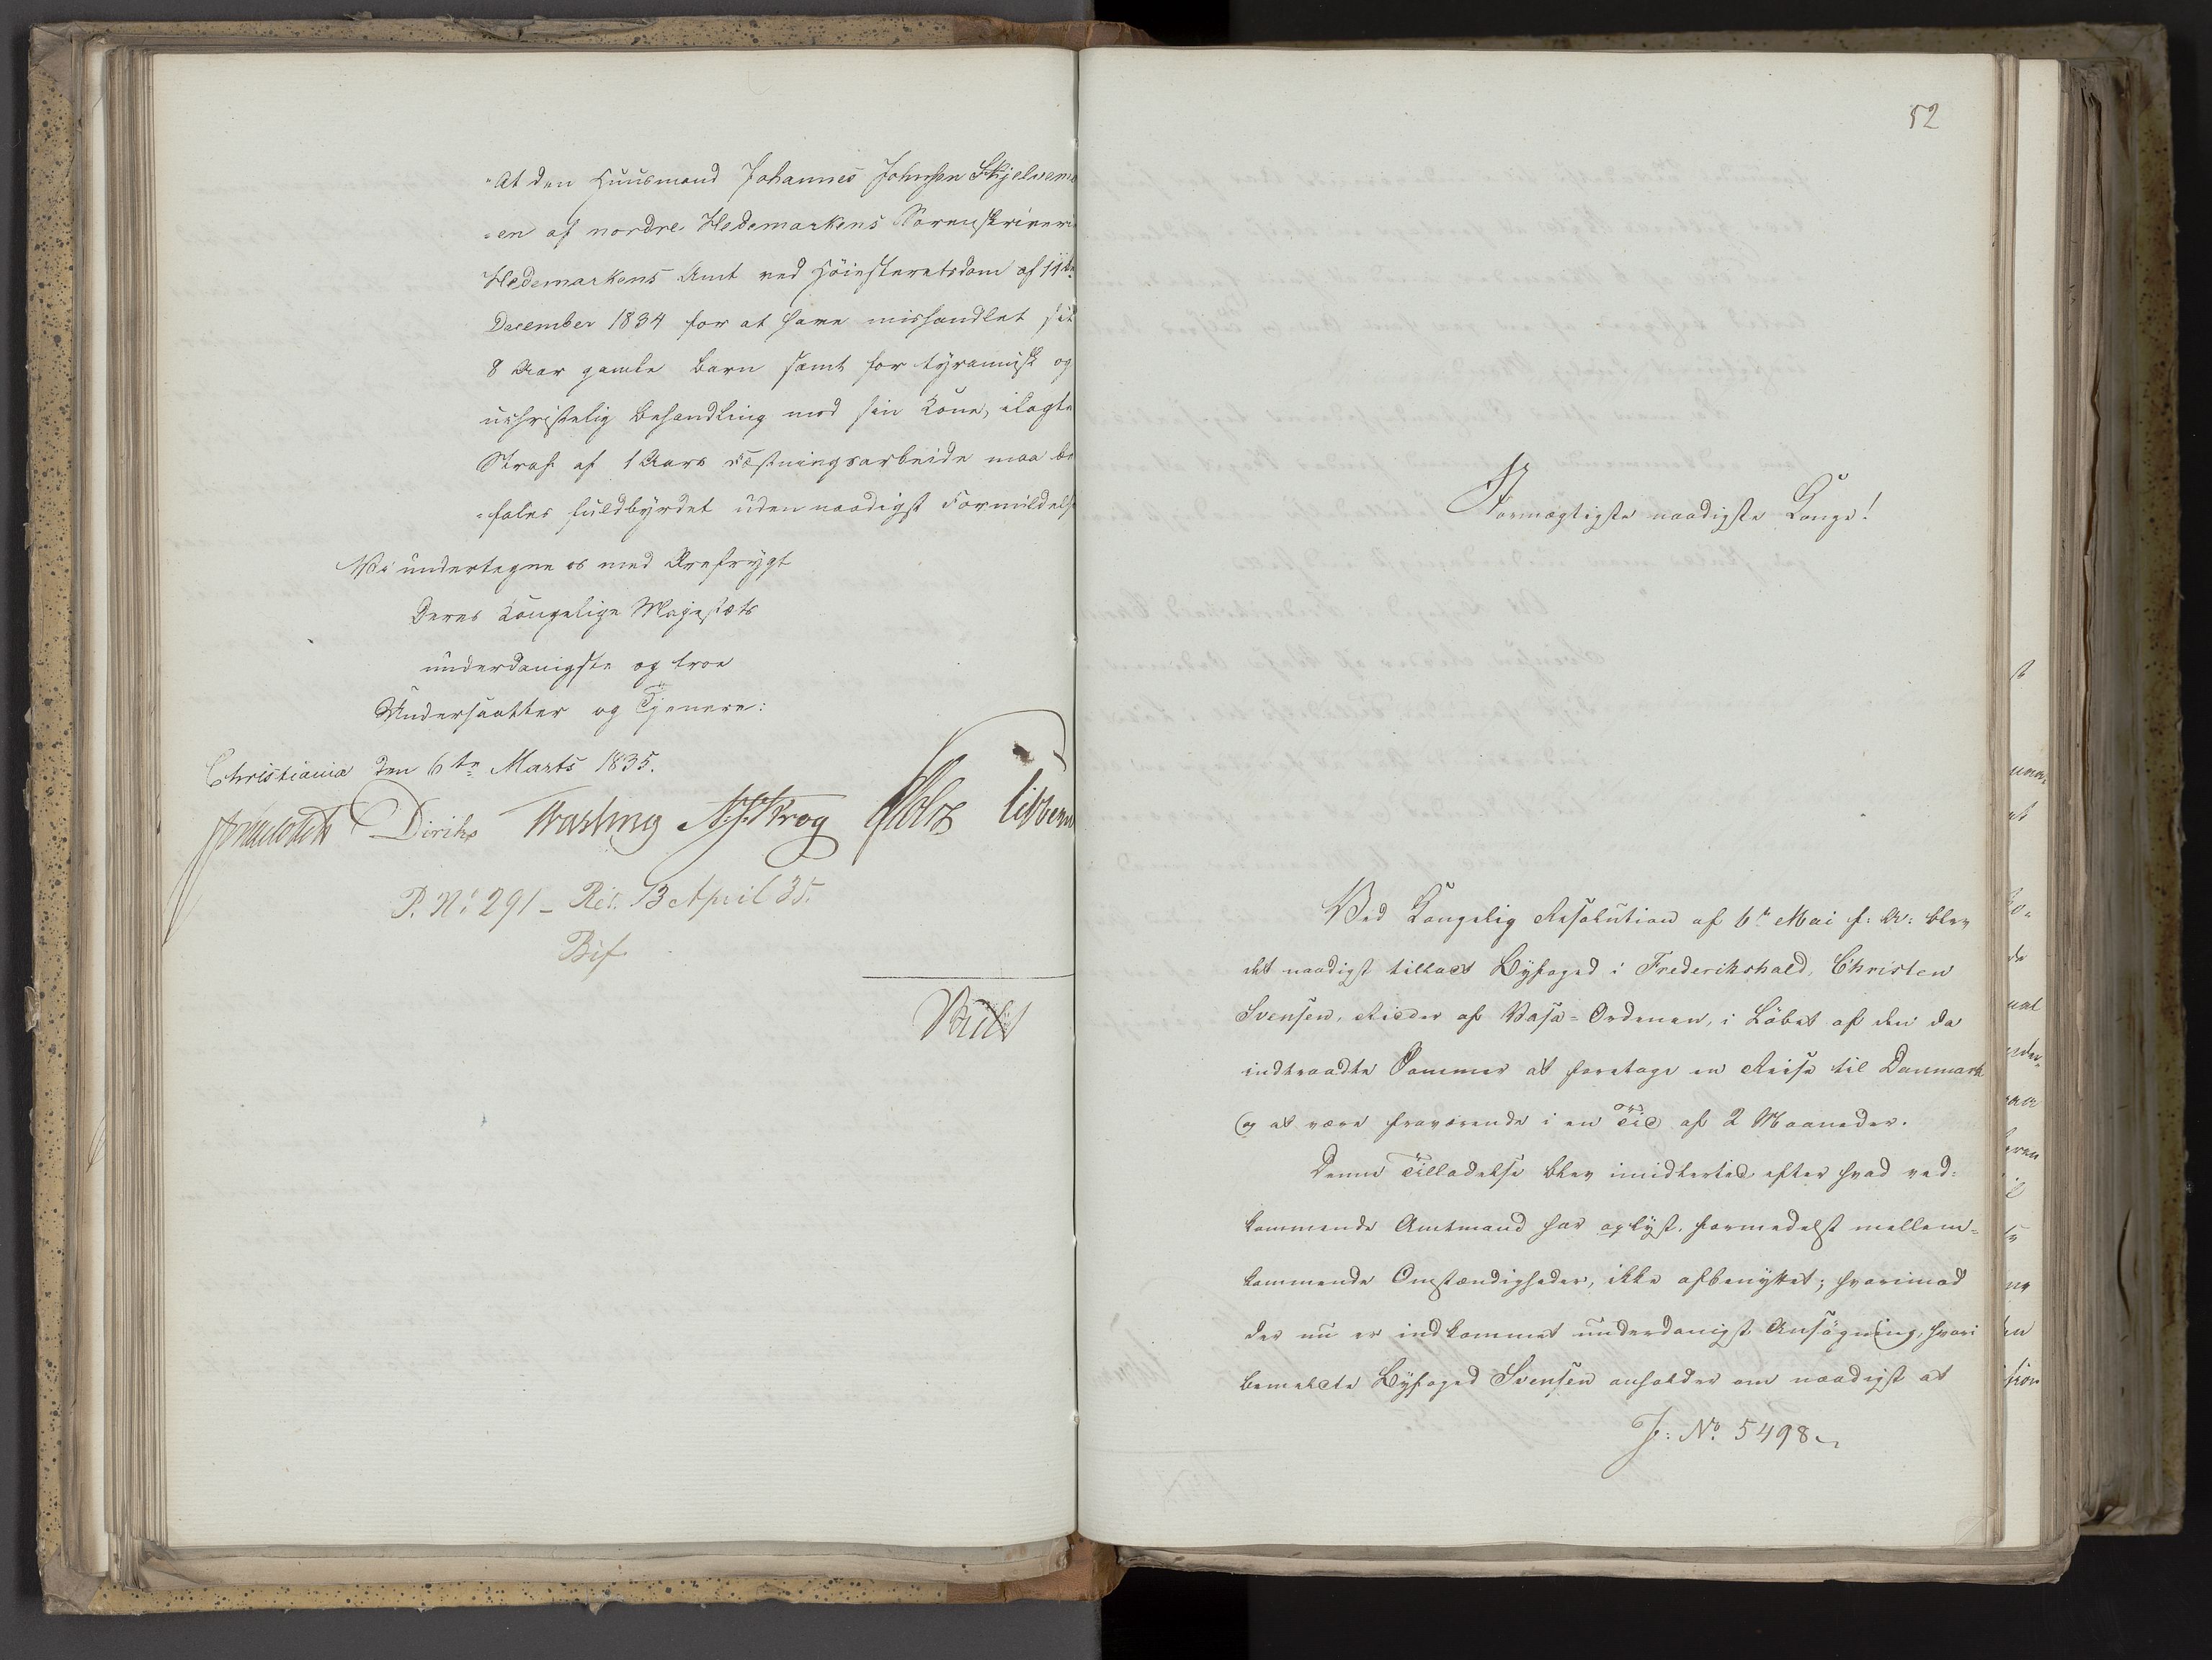 "At den Huusmand Johannes Johnsen Skjelvem
-en af nordre Hedemarkens Sorenskriveri
Hedemarkens Amt ved Høiesteretsdom af 11te
December 1834 for at have mishandlet sit
8 Aar gamle Barn samt for tyrannisk og
uchristelig Behandling mod sin Kone, ilagte
Straf af 1 Aars Fæstningsarbeide maa be
-fales fuldbyrdet uden naadigst Formildelse
Vi undertegne os med Ærefrygt
Deres Kongelige Majestæts
underdanigste og troe
Undersaatter og Tjenere:
Christiania den 6te Marts 1835.
Diriks N. J. Krog Holst
P. No 291 - Res. 13 April 35.
Bif
52
Stormægtigste naadigste Konge!
Ved Kongelig Resolution af 6te Mai f: A: blev
det naadigst tilladt Byfoged i Frederikshald, Christen
Svensen, Ridder af Vasa-Ordenen, i Løbet af den da
indtraadte Sommer at foretage en Reise til Danmark
og at være fraværende i en Tid af 2 Maaneder.
Denne Tilladelse blev imidlertid efter hvad ved-
kommende Amtmand har oplyst, formedelst mellem-
kommende Omstændigheder, ikke afbenyttet; hvorimod
der nu er indkommet underdanigst Ansøgning, hvori
bemeldte Byfoged Svensen anholder om naadigst at
J: No. 5498